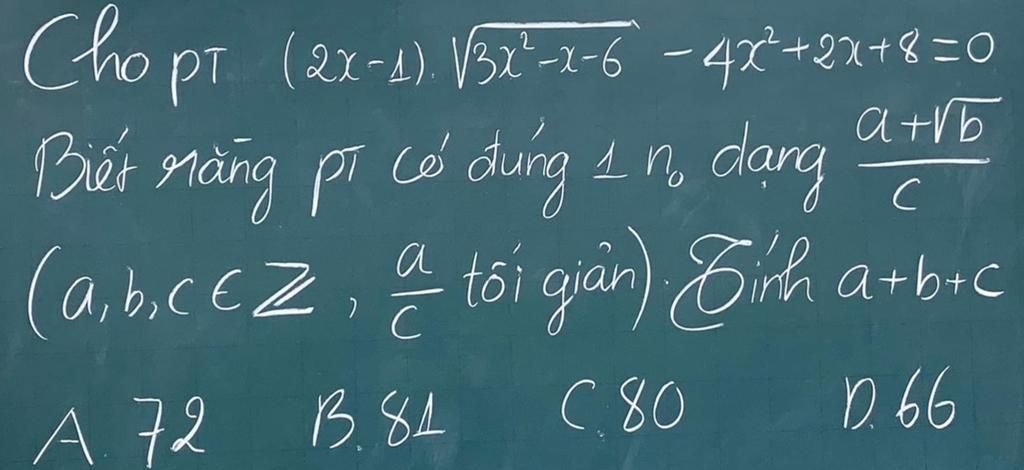 Cho pT (2x-1).√(3x²-x-6) -4x²+2x+8=0
Biết rằng pT có đúng 1 n₀ dạng (a+√b)/c
(a,b,c ∈ Z, a/c tối giản). Tính a+b+c
A. 72 B. 81 C. 80 D. 66